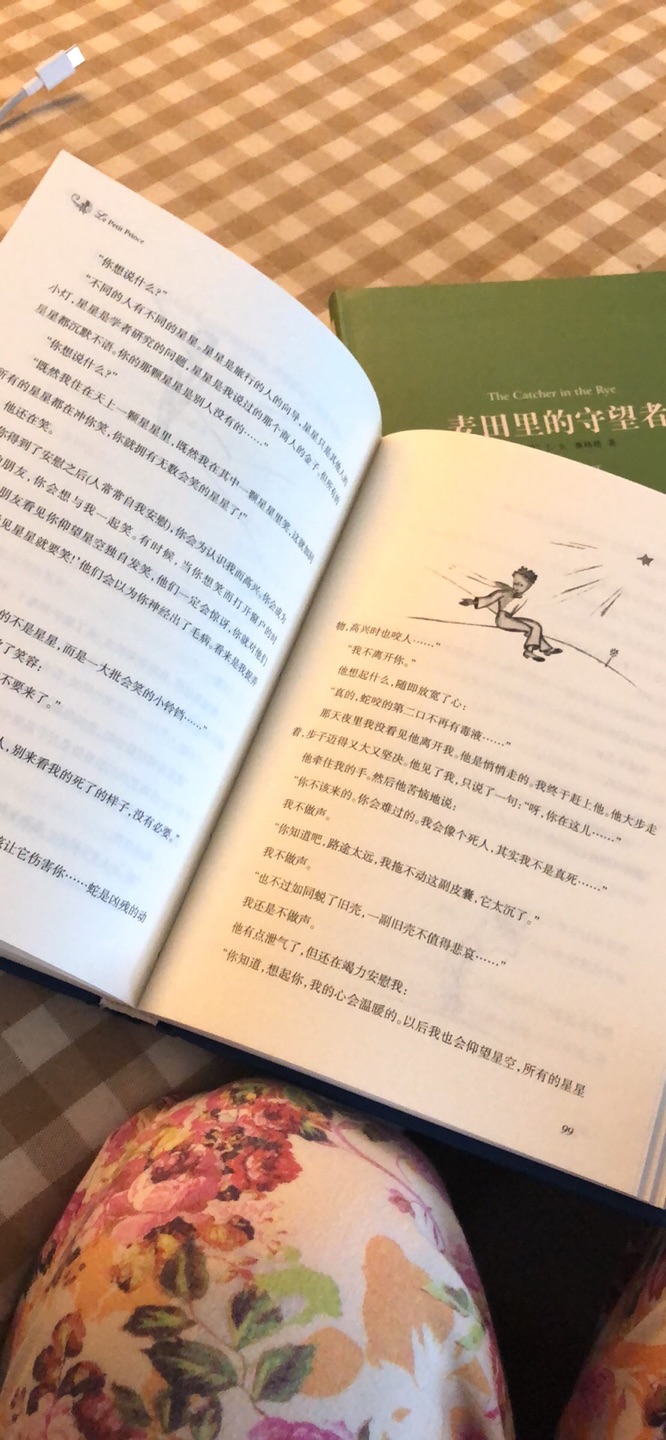 Le Petit Prince
“你想说什么？”
“不同的人有不同的星星。星星是旅行的人的向导，星星只是其他人的
小灯，星星是学者研究的问题，星星是我说过的那个商人的金子。但所有的
星星都沉默不语。你的那颗星星是别人没有的……”
“你想说什么？”
“既然我住在天上一颗星星里，既然我在其中一颗星星里笑，这就如同
所有的星星都在冲你笑，你就拥有无数会笑的星星了！”
他还在笑。
你得到了安慰之后(人常常自我安慰)，你会为认识我而高兴。你会成为
朋友，你会想与我一起笑。有时候，当你想笑而打开窗户的时
朋友看见你仰望星空独自发笑，他们一定会惊讶，你就对他们
见星星就要笑！’他们会以为你神经出了毛病。看来是我捉弄
的不是星星，而是一大批会笑的小铃铛……”
了笑容：
不要来了。”
人，别来看我的死了的样子，没有必要。”
让它伤害你……蛇是凶残的动
The Catcher in the Rye
麦田里的守望者
著
物，高兴时也咬人……”
“我不离开你。”
他想起什么，随即放宽了心：
“真的，蛇咬的第二口不再有毒液……”
那天夜里我没看见他离开我。他是悄悄走的。我终于赶上他。他大步走
着，步子迈得又大又坚决。他见了我，只说了一句：“呀，你在这儿……”
他牵住我的手。然后他苦恼地说：
“你不该来的。你会难过的。我会像个死人，其实我不是真死……”
我不做声。
“你知道吧，路途太远，我拖不动这副皮囊，它太沉了。”
我不做声。
“也不过如同蜕了旧壳，一副旧壳不值得悲哀……”
我还是不做声。
他有点泄气了，但还在竭力安慰我：
“你知道，想起你，我的心会温暖的。以后我也会仰望星空，所有的星星
99